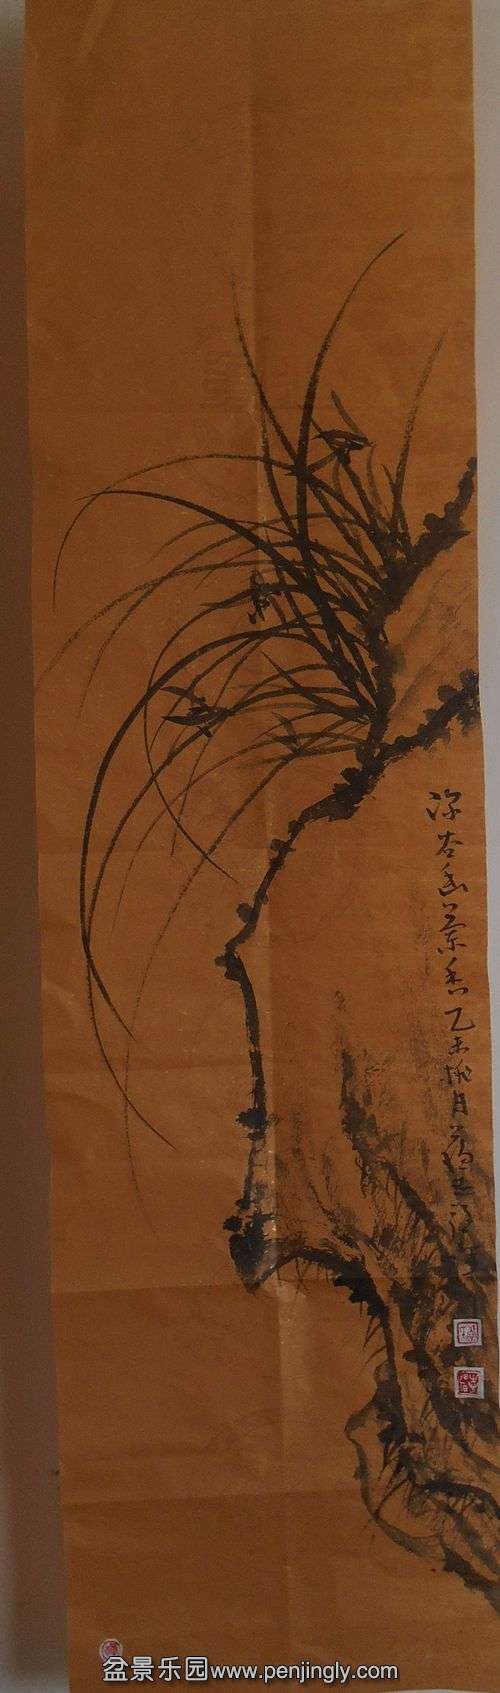 深谷幽兰香乙未桃月
盆景乐园www.penjingly.com